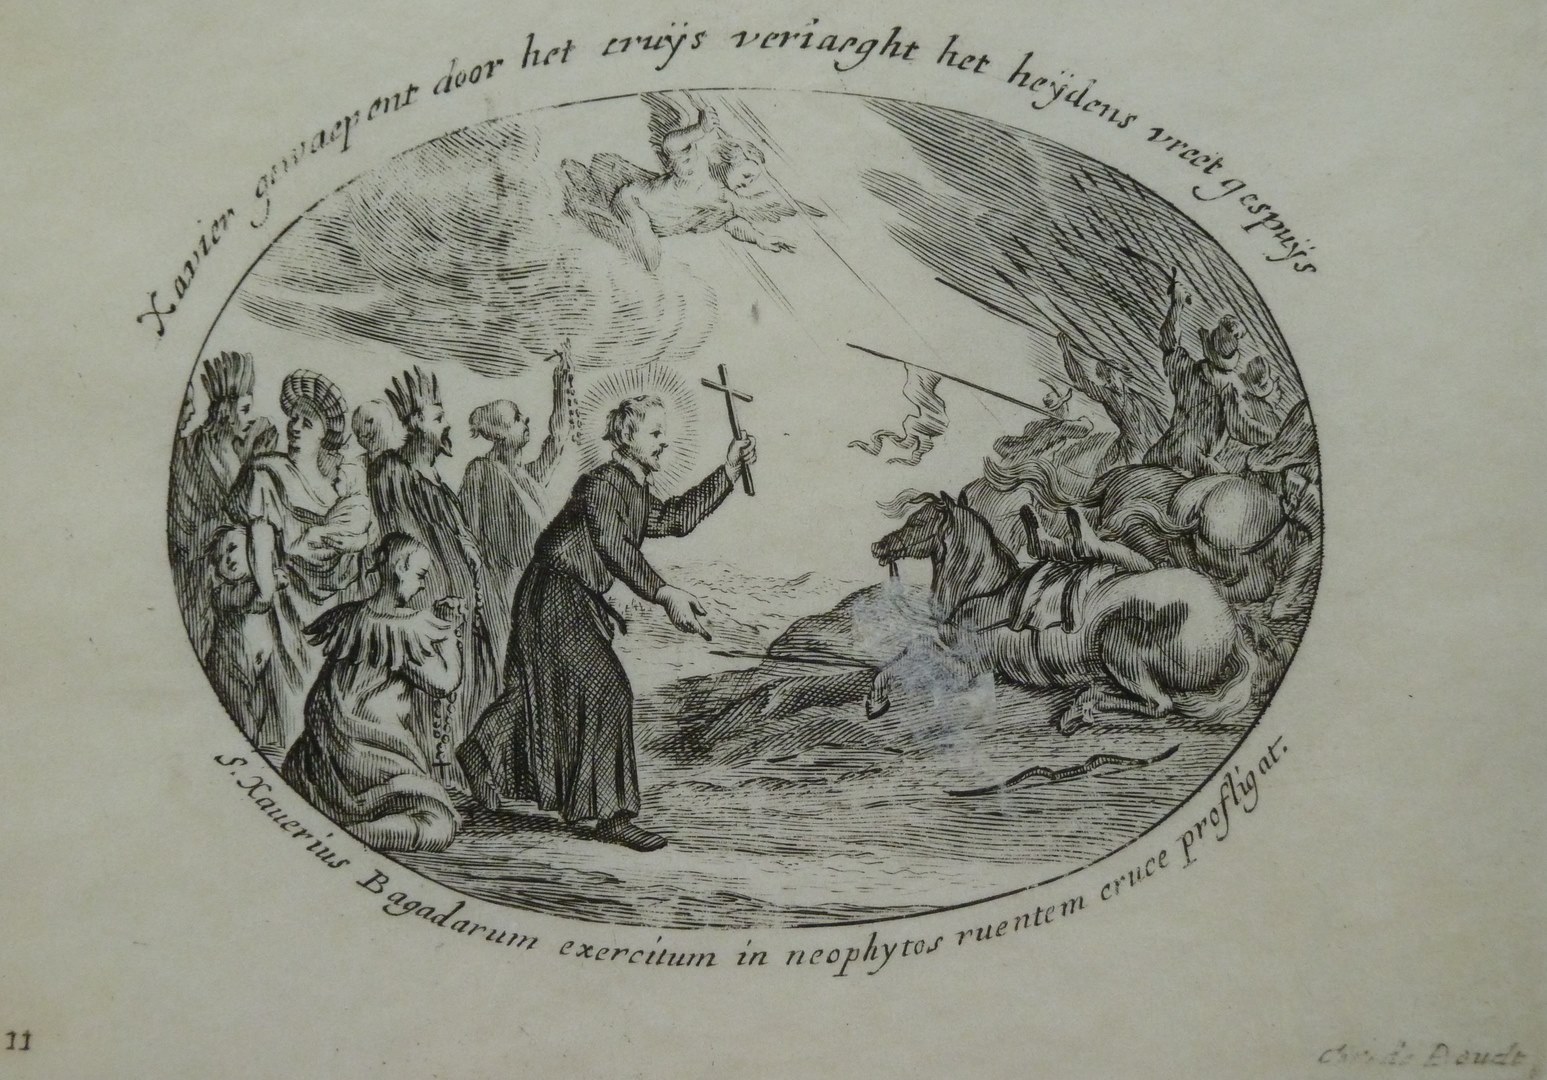 Xavier gewaepent door het cruÿs veriaeght het heÿdens vreet gespuÿs
S. Xauerius Bagadarum exercitum in neophytos ruentem cruce profligat.
11